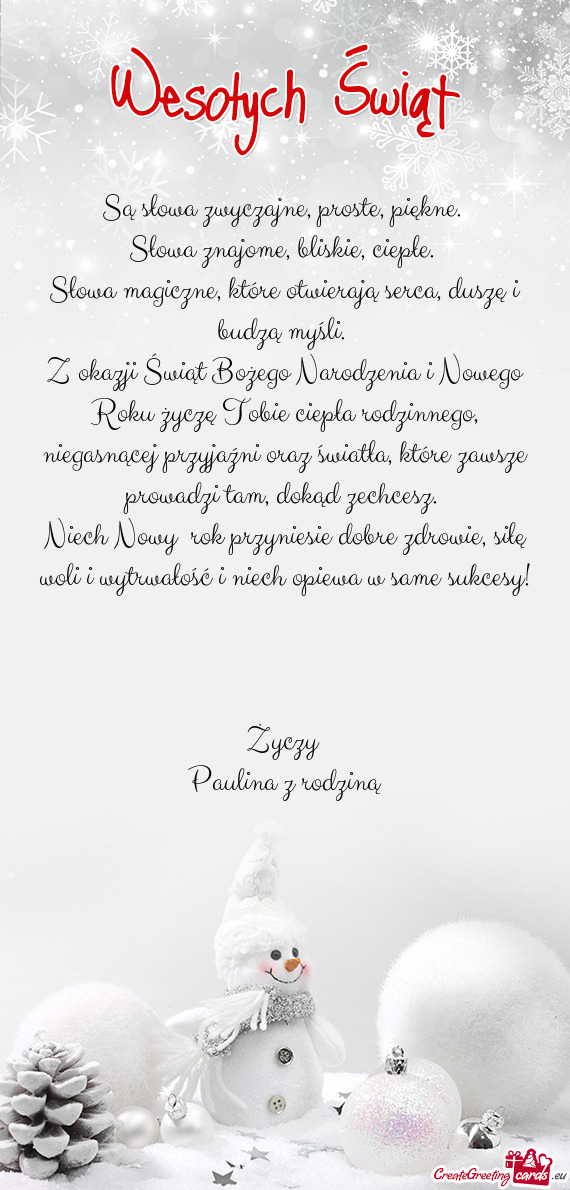 Wesołych Świąt
Są słowa zwyczajne, proste, piękne.
Słowa znajome, bliskie, ciepłe.
Słowa magiczne, które otwierają serca, duszę i
budzą myśli.
Z okazji Świąt Bożego Narodzenia i Nowego
Roku życzę Tobie ciepła rodzinnego,
niegasnącej przyjaźni oraz światła, które zawsze
prowadzi tam, dokąd zechcesz.
Niech Nowy rok przyniesie dobre zdrowie, siłę
woli i wytrwałość i niech opiewa w same sukcesy!
Życzy
Paulina z rodziną
CreateGreeting cards .eu